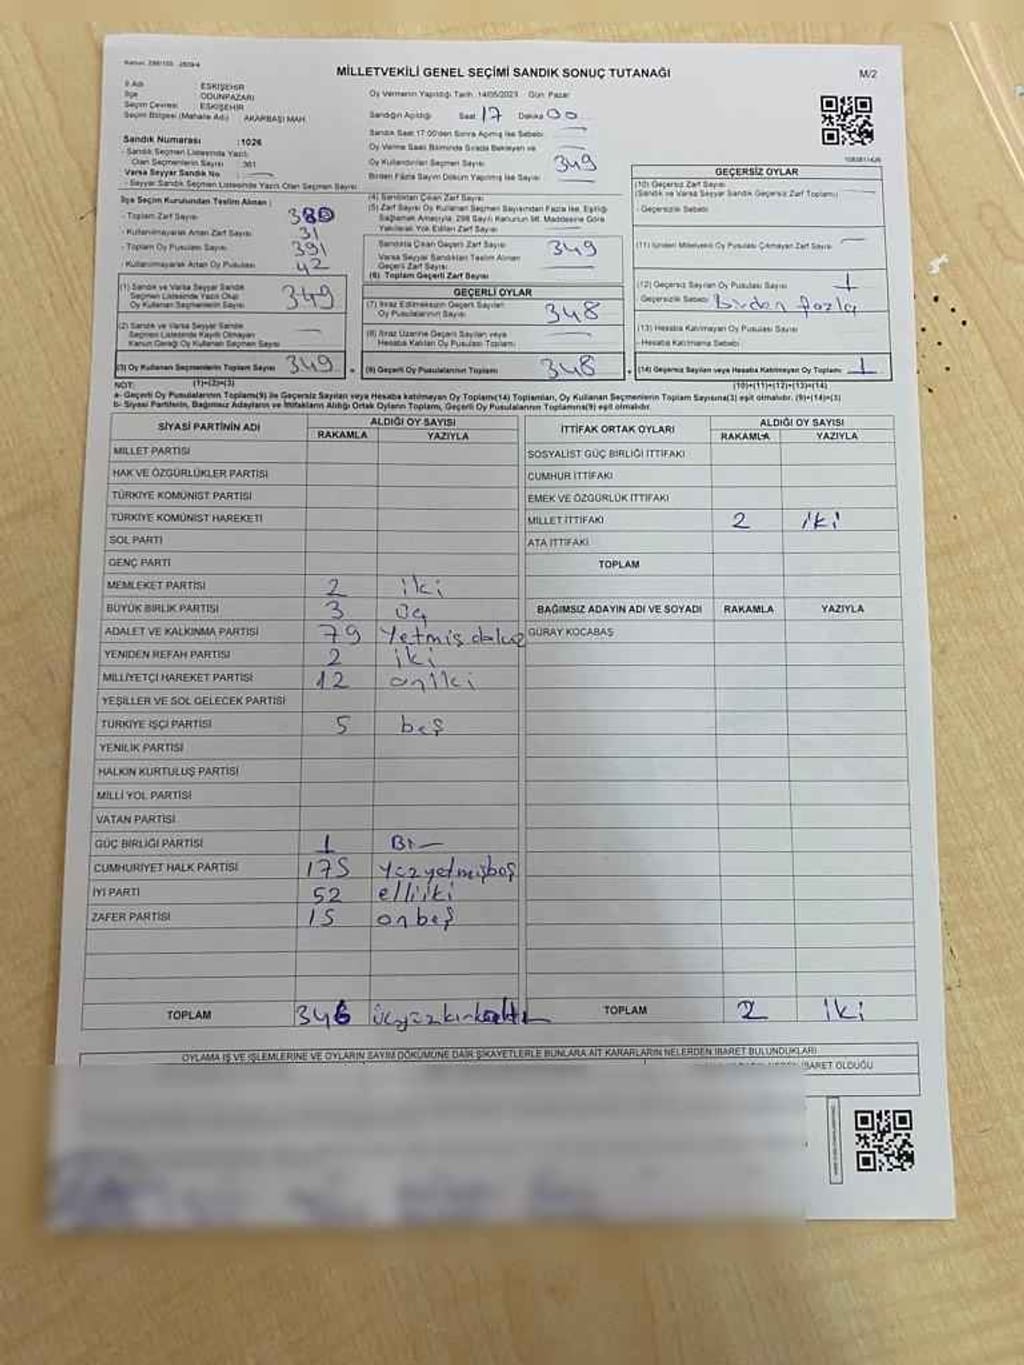 MİLLETVEKİLİ GENEL SEÇİMİ SANDIK SONUÇ TUTANAĞI
M/2
İl Adı : ESKİŞEHİR
İlçe : ODUNPAZARI
Seçim Çevresi : ESKİŞEHİR
Seçim Bölgesi (Mahalle Adı) : AKARBAŞI MAH.
Sandık Numarası : 1026
- Sandık Seçmen Listesinde Yazılı
Olan Seçmenlerin Sayısı : 361
Varsa Seyyar Sandık No :
- Seyyar Sandık Seçmen Listesinde Yazılı Olan Seçmen Sayısı
İlçe Seçim Kurulundan Teslim Alınan :
- Toplam Zarf Sayısı 380
- Kullanılmayarak Artan Zarf Sayısı 31
- Toplam Oy Pusulası Sayısı 391
- Kullanılmayarak Artan Oy Pusulası 42
(1) Sandık ve Varsa Seyyar Sandık
Seçmen Listesinde Yazılı Olup
Oy Kullanan Seçmenlerin Sayısı 349
(2) Sandık ve Varsa Seyyar Sandık
Seçmen Listesinde Kayıtlı Olmayan
Kanun Gereği Oy Kullanan Seçmen Sayısı
(3) Oy Kullanan Seçmenlerin Toplam Sayısı 349
(1)+(2)=(3)
Oy Vermenin Yapıldığı Tarih :14/05/2023 Gün: Pazar
Sandığın Açıldığı Saat 17 Dakika 00
Sandık Saat 17.00'den Sonra Açılmış İse Sebebi:
Oy Verme Saati Bitiminde Sırada Bekleyen ve
Oy Kullandırılan Seçmen Sayısı 349
Birden Fazla Sayım Döküm Yapılmış İse Sayısı
(4) Sandıktan Çıkan Zarf Sayısı
(5) Zarf Sayısı Oy Kullanan Seçmen Sayısından Fazla İse, Eşitliği
Sağlamak Amacıyla, 298 Sayılı Kanunun 98. Maddesine Göre
Yakılarak Yok Edilen Zarf Sayısı
Sandıkta Çıkan Geçerli Zarf Sayısı 349
Varsa Seyyar Sandıktan Teslim Alınan
Geçerli Zarf Sayısı
(6) Toplam Geçerli Zarf Sayısı
GEÇERLİ OYLAR
(7) İtiraz Edilmeksizin Geçerli Sayılan
Oy Pusulalarının Sayısı 348
(8) İtiraz Üzerine Geçerli Sayılan veya
Hesaba Katılan Oy Pusulası Toplamı
(9) Geçerli Oy Pusulalarının Toplamı 348
GEÇERSİZ OYLAR
(10) Geçersiz Zarf Sayısı
(Sandık ve Varsa Seyyar Sandık Geçersiz Zarf Toplamı)
- Geçersizlik Sebebi
(11) İçinden Milletvekili Oy Pusulası Çıkmayan Zarf Sayısı
(12) Geçersiz Sayılan Oy Pusulası Sayısı 1
Geçersizlik Sebebi Birden fazla
(13) Hesaba Katılmayan Oy Pusulası Sayısı
- Hesaba Katılmama Sebebi
(14) Geçersiz Sayılan veya Hesaba Katılmayan Oy Toplamı 1
(10)+(11)+(12)+(13)=(14)
NOT:
a- Geçerli Oy Pusulalarının Toplamı(9) ile Geçersiz Sayılan veya Hesaba katılmayan Oy Toplamı(14) Toplamları, Oy Kullanan Seçmenlerin Toplam Sayısına(3) eşit olmalıdır. (9)+(14)=(3)
b- Siyasi Partilerin, Bağımsız Adayların ve İttifakların Aldığı Ortak Oyların Toplamı, Geçerli Oy Pusulalarının Toplamına(9) eşit olmalıdır.
SİYASİ PARTİNİN ADI ALDIĞI OY SAYISI
RAKAMLA YAZIYLA
MİLLET PARTİSİ
HAK VE ÖZGÜRLÜKLER PARTİSİ
TÜRKİYE KOMÜNİST PARTİSİ
TÜRKİYE KOMÜNİST HAREKETİ
SOL PARTİ
GENÇ PARTİ
MEMLEKET PARTİSİ 2 iki
BÜYÜK BİRLİK PARTİSİ 3 üç
ADALET VE KALKINMA PARTİSİ 79
YENİDEN REFAH PARTİSİ 2 iki
MİLLİYETÇİ HAREKET PARTİSİ 12 oniki
YEŞİLLER VE SOL GELECEK PARTİSİ
TÜRKİYE İŞÇİ PARTİSİ 5 beş
YENİLİK PARTİSİ
HALKIN KURTULUŞ PARTİSİ
MİLLİ YOL PARTİSİ
VATAN PARTİSİ
GÜÇ BİRLİĞİ PARTİSİ 1 Bir
CUMHURİYET HALK PARTİSİ 175 yüzyetmişbeş
İYİ PARTİ 52 elliiki
ZAFER PARTİSİ 15 onbeş
TOPLAM 346 üçyüzkırkaltı
İTTİFAK ORTAK OYLARI ALDIĞI OY SAYISI
RAKAMLA YAZIYLA
SOSYALİST GÜÇ BİRLİĞİ İTTİFAKI
CUMHUR İTTİFAKI
EMEK VE ÖZGÜRLÜK İTTİFAKI
MİLLET İTTİFAKI 2 iki
ATA İTTİFAKI
TOPLAM
BAĞIMSIZ ADAYIN ADI VE SOYADI RAKAMLA YAZIYLA
GÜRAY KOCABAŞ
TOPLAM 2 iki
OYLAMA İŞ VE İŞLEMLERİNE VE OYLARIN SAYIM DÖKÜMÜNE DAİR ŞİKAYETLERLE BUNLARA AİT KARARLARIN NELERDEN İBARET BULUNDUKLARI
İBARET OLDUĞU